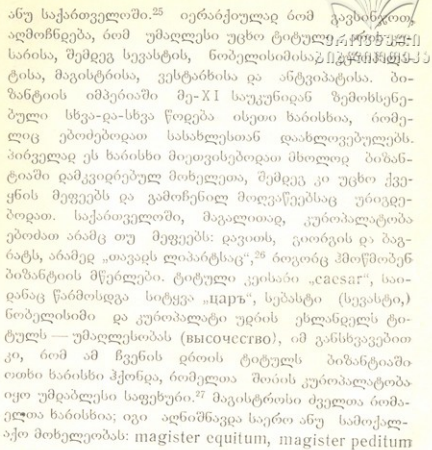 ანუ საქართველოში.²⁵ იერარქიულად რომ გავსინჯოთ,
აღმოჩნდება, რომ უმაღლესი უცხო ტიტული
სარისა, შემდეგ სევასტის, ნობელისიმისა,
ტისა, მაგისტრისა, ვესტარხისა და ანტვიპატისა. ბი-
ზანტიის იმპერიაში მე-XI საუკუნიდან ზემოხსენე-
ბული სხვა-და-სხვა წოდება ისეთი ხარისხია, რომე-
ლიც ებოძებოდათ სასახლესთან დაახლოვებულებს.
პირველად ეს ხარისხი მიეთვისებოდათ მხოლოდ ბიზან-
ტიაში დამკვიდრებულ მოხელეთა, შემდეგ კი უცხო ქვე-
ყნის მეფეებს და გამოჩენილ მოღვაწეებსაც ურიგდე-
ბოდათ. საქართველოში, მაგალითად, კუროპალატობა
ებოძათ არამც თუ მეფეებს: დავითს, გიორგის და ბაგ-
რატს, არამედ „თავადს ლიპარტსაც“,²⁶ როგორც ჰმოწმობენ
ბიზანტიის მწერლები. ტიტული კეისარი „caesar“, საი-
დანაც წარმოსდგა სიტყვა „царъ“, სებასტი (სევასტი,)
ნობელისიმი და კუროპალატი უდრის ეხლანდელს ტი-
ტულს — უმაღლესობას (высочєство), იმ განსხვავებით
კი, რომ ამ ჩვენის დროის ტიტულს ბიზანტიაში
ოთხი ხარისხი ჰქონდა, რომელთა შორის კუროპალატობა
იყო უმდაბლესი საფეხური.²⁷ მაგისტროსი ძველთა რომა-
ელთა ხარისხია; იგი აღნიშნავდა საერო ანუ სამოქალ-
აქო მოხელეობას: magister equitum, magister peditum